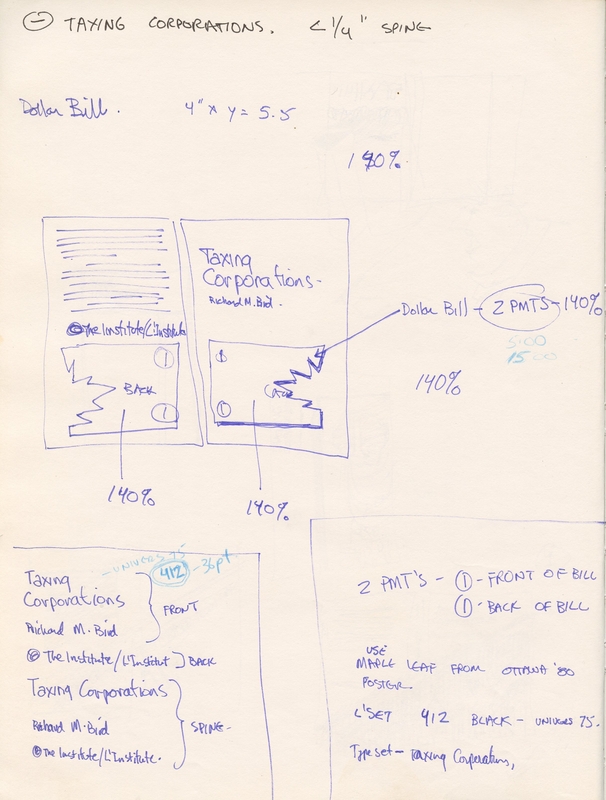 TAXING CORPORATIONS. < 1/4" SPINE
Dollar Bill. 4" x y = 5.5
140%
Taxing
Corporations-
Richard M. Bird.
The Institute/L'Institute
Dollar Bill - 2 PMTS - 140%
5:00
15:00
140%
1
BACK
1
$
1
140%
140%
- UNIVERS 75
412 - 36pt
Taxing
Corporations
FRONT
Richard M. Bird
© The Institute/L'Institut BACK
Taxing Corporations
Richard M. Bird SPINE-
© The Institute/L'Institute.
2 PMT'S - 1 - FRONT OF BILL
1 - BACK OF BILL
USE
MAPLE LEAF FROM OTTAWA '80
POSTER
L'SET 412 BLACK - UNIVERS 75.
Typeset - Taxing Corporations,